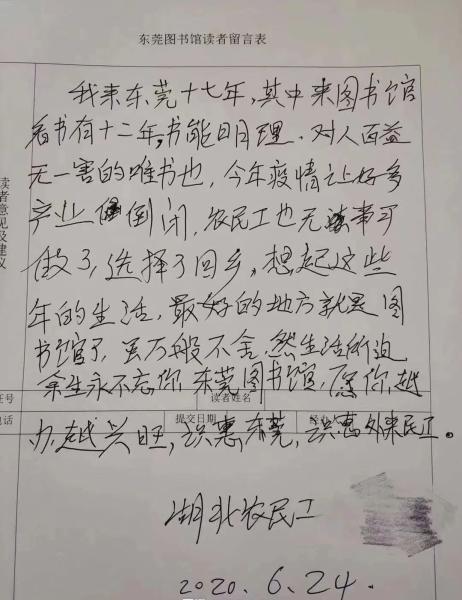 东莞图书馆读者留言表
我来东莞十七年,其中来图书馆
看书有十二年,书能明理、对人百益
无一害的唯书也,今年疫情让好多
产业倒闭,农民工也无事可
做了,选择了回乡,想起这些
年的生活,最好的地方就是图
书馆了,虽万般不舍,然生活所迫
余生永不忘你,东莞图书馆,愿你越
办越兴旺,识惠东莞,识惠外来民工。
读者意见及建议
证号
读者姓名
电话
提交日期
经办人
湖北农民工
2020.6.24.